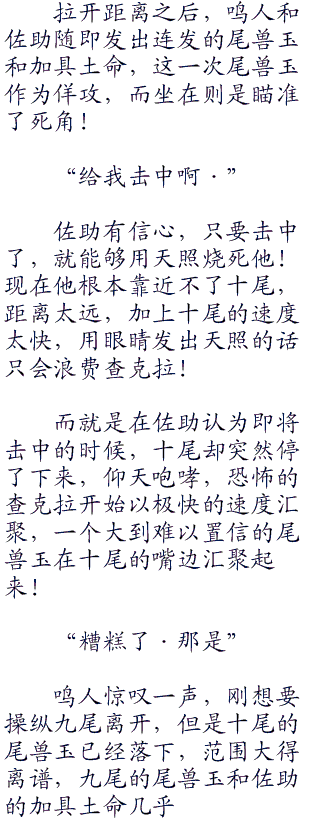 拉开距离之后，鸣人和
佐助随即发出连发的尾兽玉
和加具土命，这一次尾兽玉
作为佯攻，而坐在则是瞄准
了死角！
“给我击中啊·”
佐助有信心，只要击中
了，就能够用天照烧死他！
现在他根本靠近不了十尾，
距离太远，加上十尾的速度
太快，用眼睛发出天照的话
只会浪费查克拉！
而就是在佐助认为即将
击中的时候，十尾却突然停
了下来，仰天咆哮，恐怖的
查克拉开始以极快的速度汇
聚，一个大到难以置信的尾
兽玉在十尾的嘴边汇聚起
来！
“糟糕了·那是”
鸣人惊叹一声，刚想要
操纵九尾离开，但是十尾的
尾兽玉已经落下，范围大得
离谱，九尾的尾兽玉和佐助
的加具土命几乎